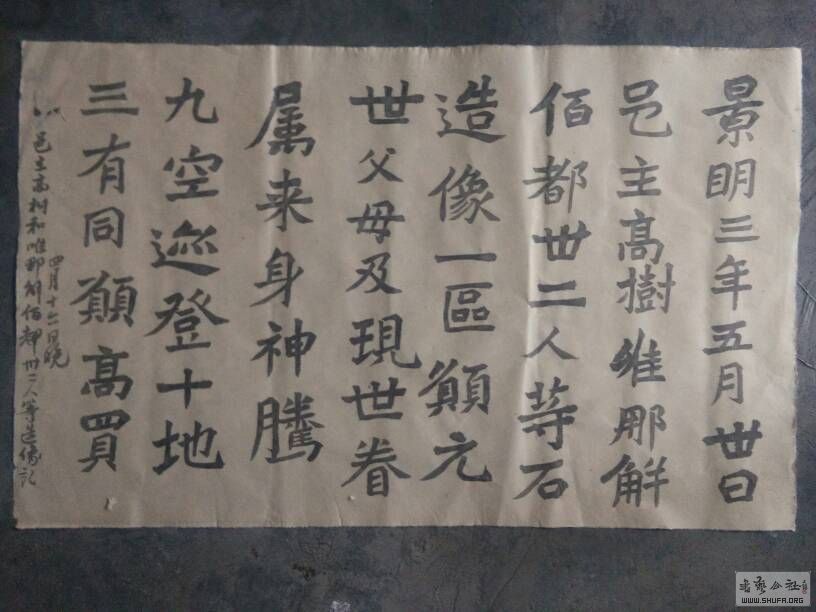 景明三年五月卅日
邑主高樹維那解
佰都卅二人等石
造像一區願元
世父母及現世眷
属来身神騰
九空迹登十地
三有同願高買
邑主高树和唯那解佰都卅二人等造像记
四月十六日晚
書藝公社
WWW.SHUFA.ORG